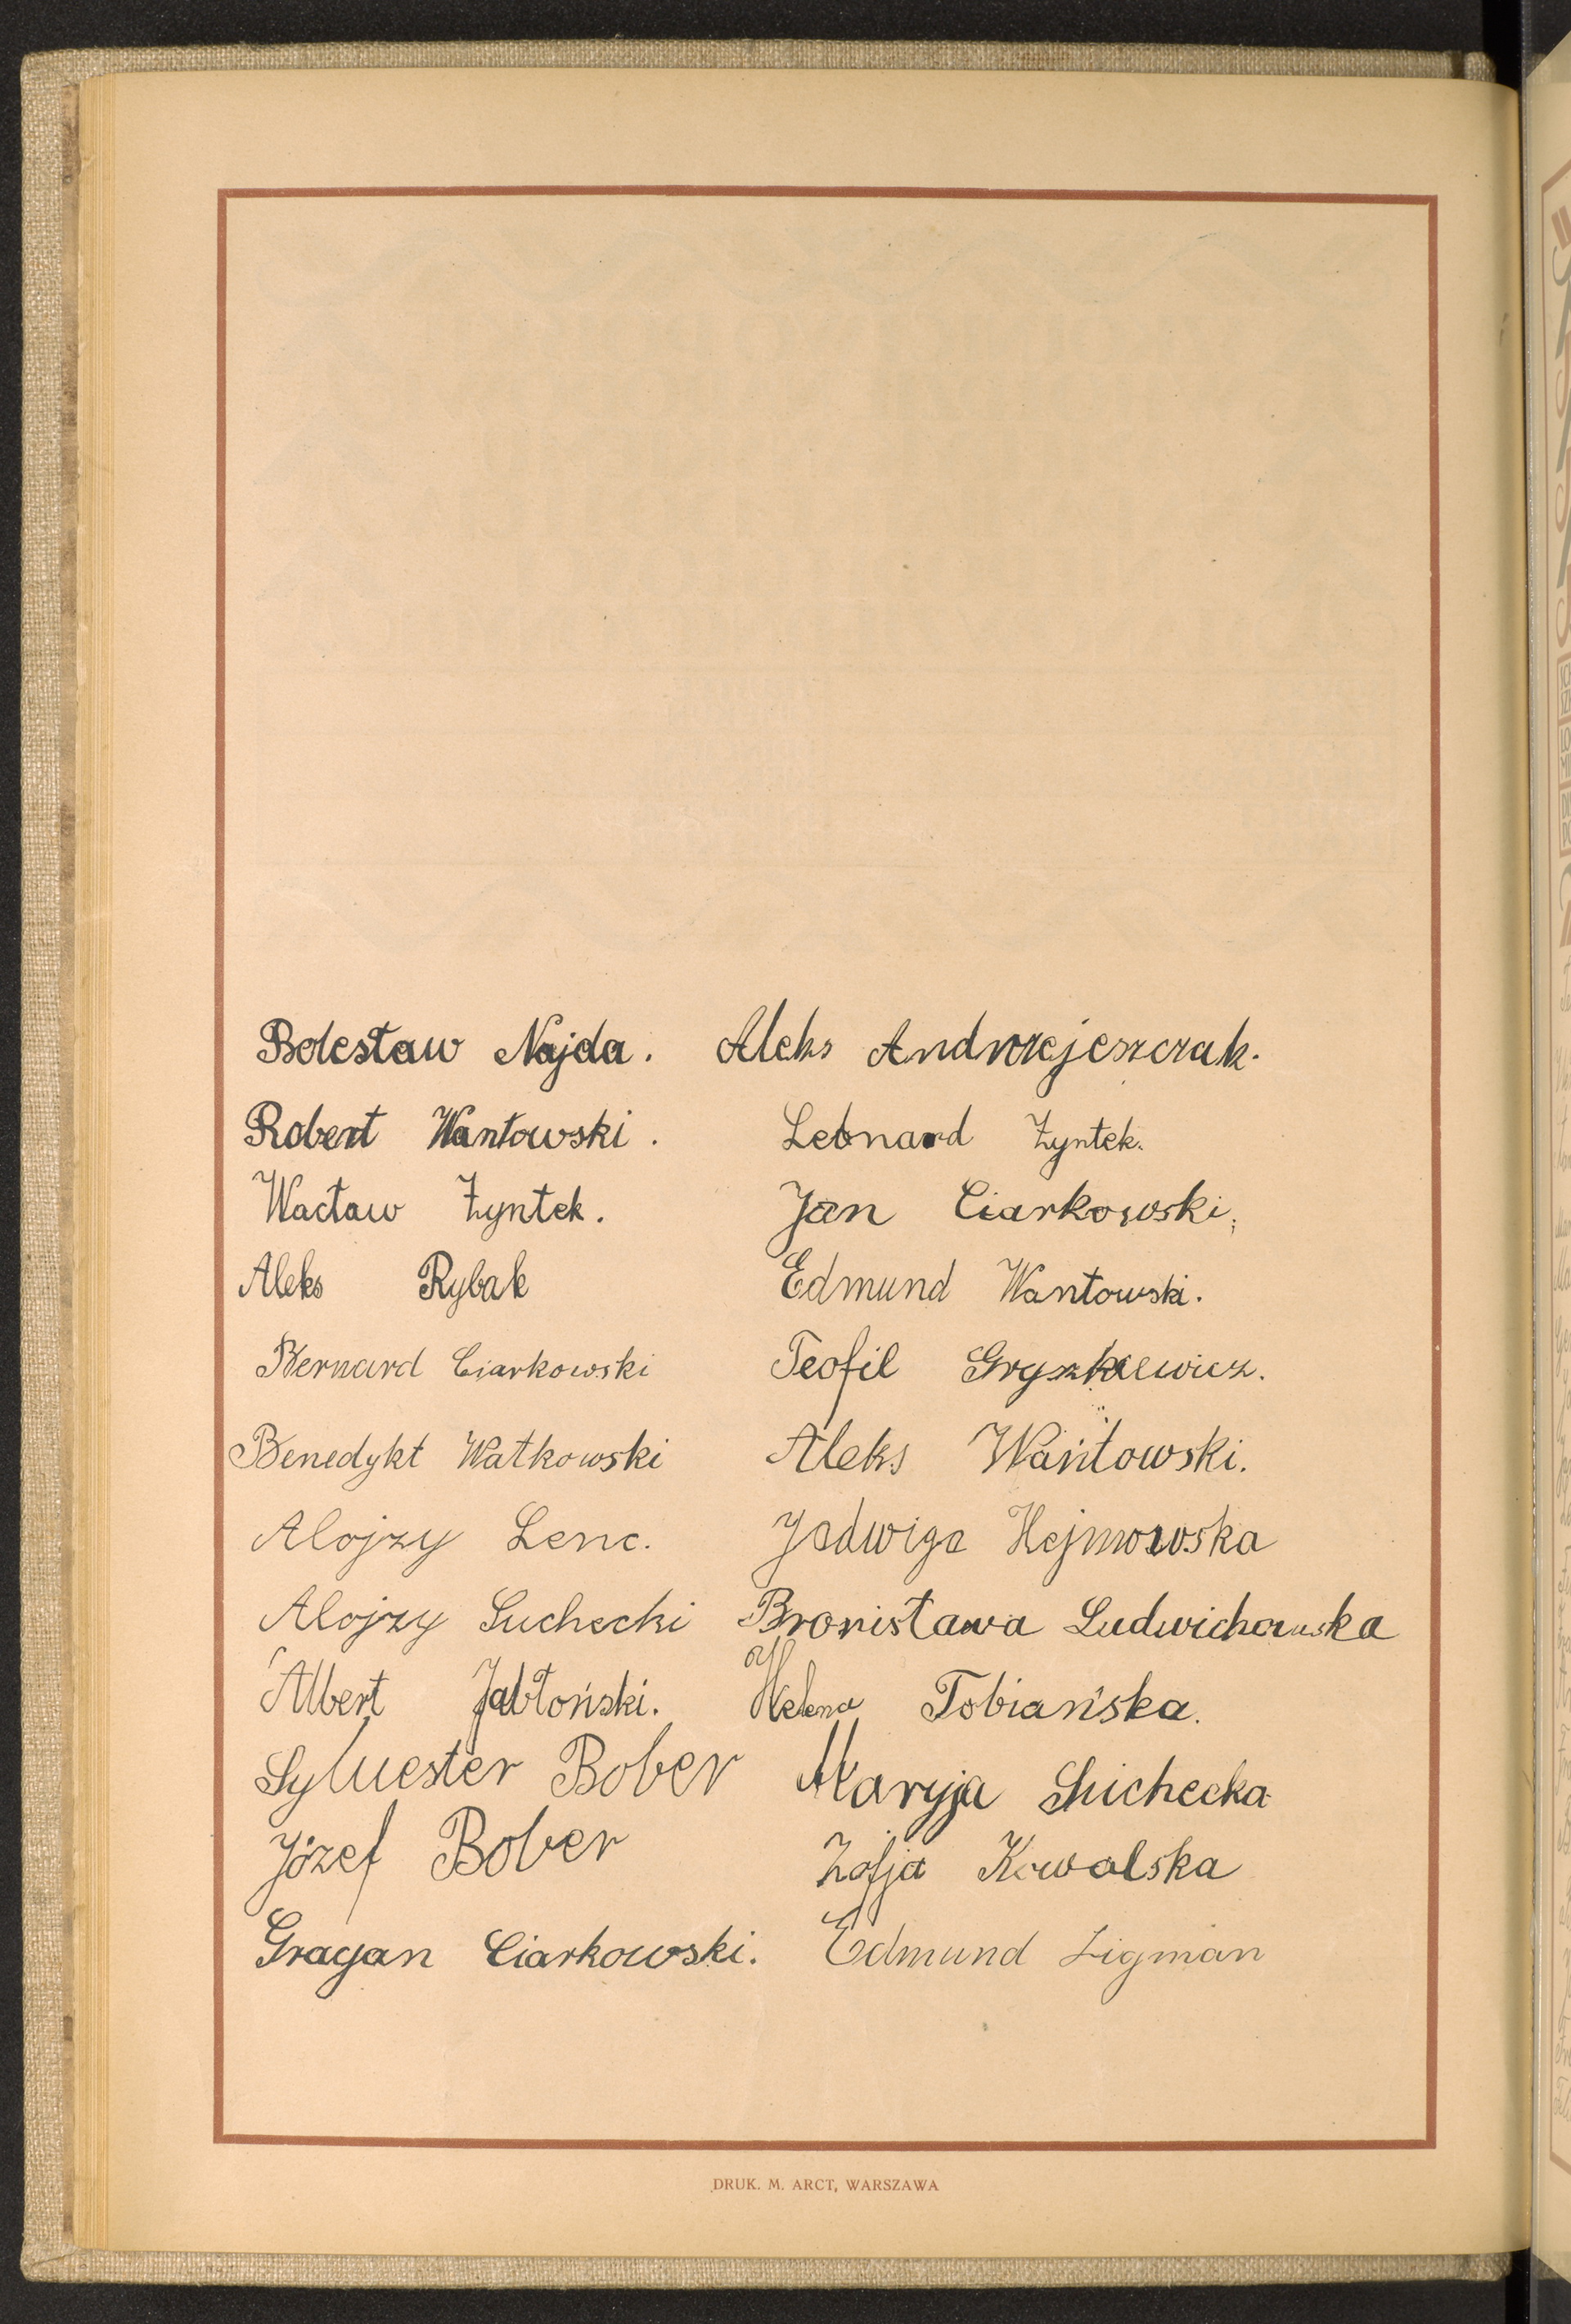 Bolesław Najda. Aleks Andrzejeszczak.
Robert Wantowski. Leonard Zyntek.
Wacław Zyntek. Jan Ciarkowski.
Aleks Rybak Edmund Wantowski.
Bernard Ciarkowski Teofil Gryszkiewicz.
Benedykt Watkowski Aleks Wantowski.
Alojzy Lenc. Jadwiga Hejmowska
Alojzy Suchecki Bronisława Ludwichowska
Albert Jabłoński. Helena Tobiańska.
Sylwester Bober Maryja Suchecka
Józef Bober Zofja Kowalska
Gracjan Ciarkowski. Edmund Zigman
DRUK. M. ARCT, WARSZAWA